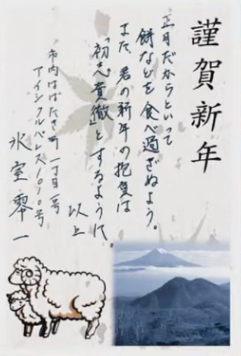 謹賀新年
正月だからといって
餅などを食べ過ぎぬよう。
また、君の新年の抱負は
「初志貫徹」とするように。
以上
市内はばたき町一丁目一号
アイシクルパレス1010号
氷室零一